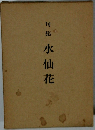 水仙花